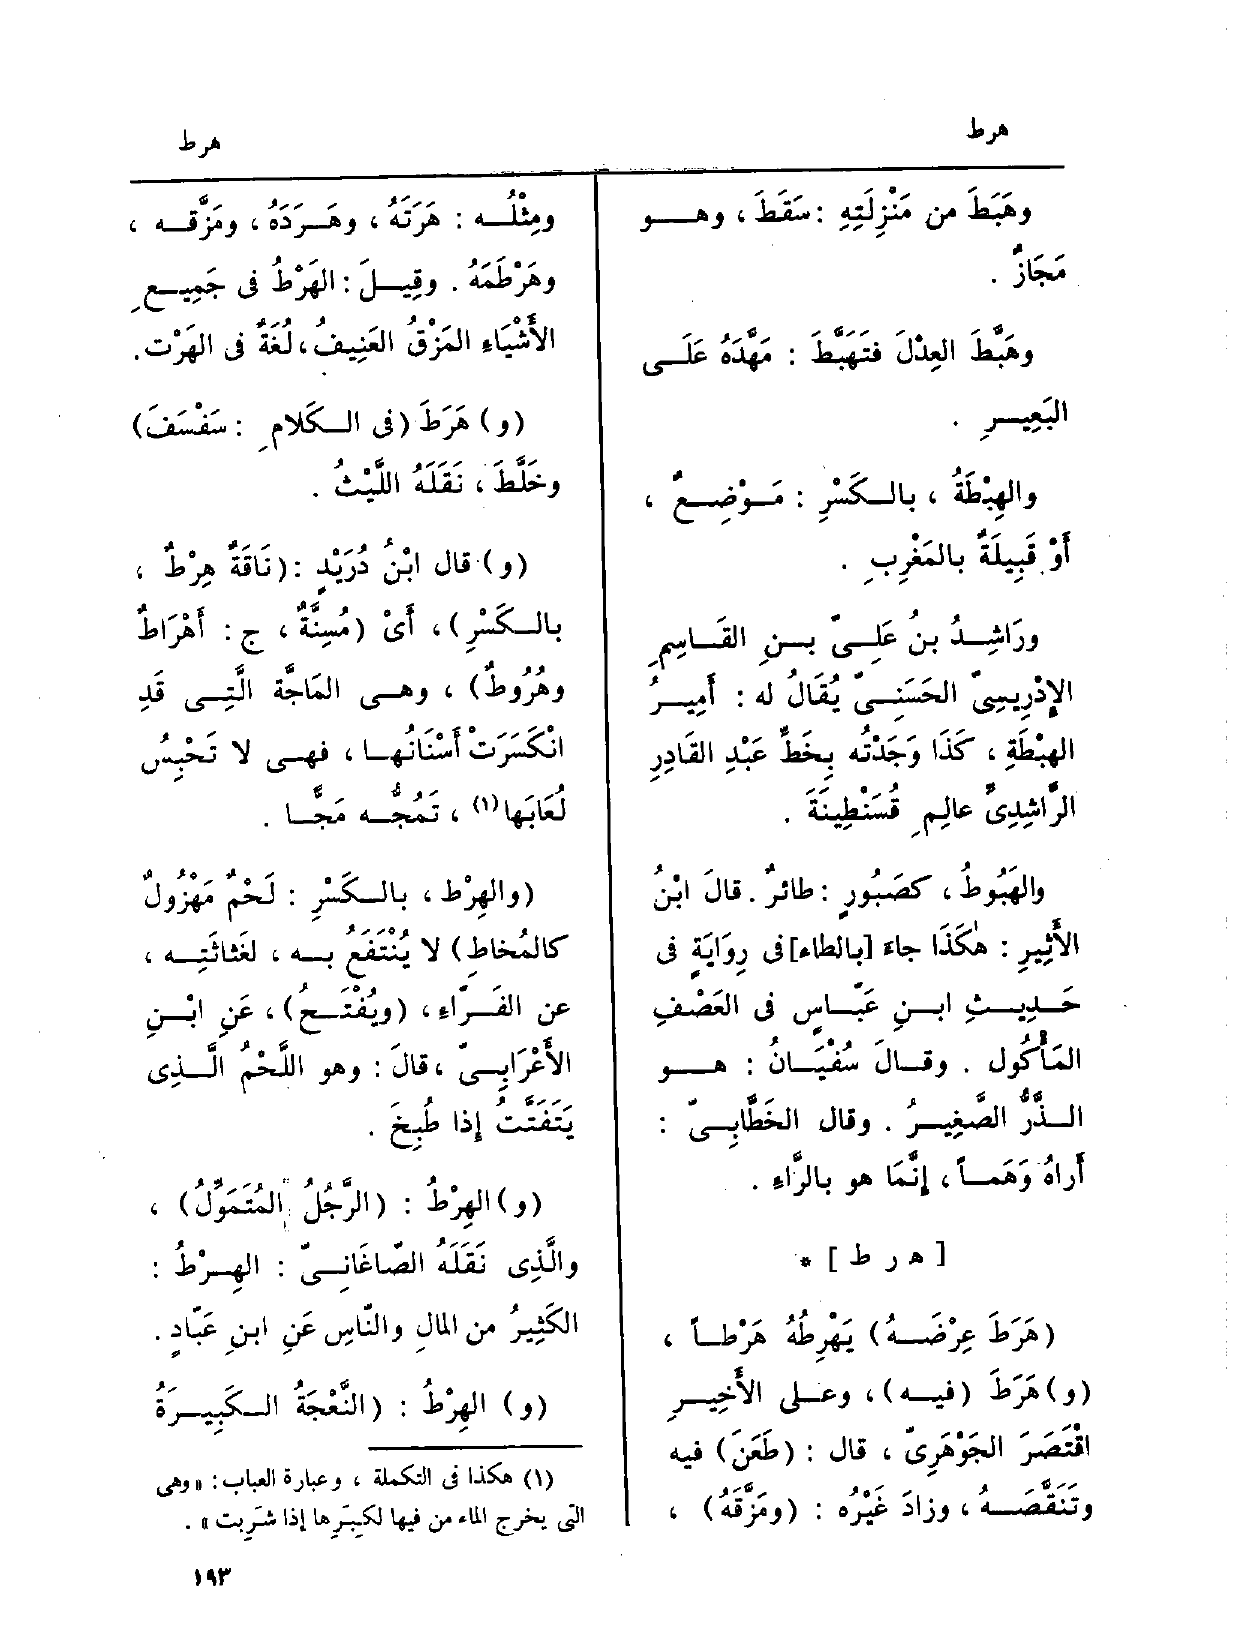 هرط
هرط
وهَبَطَ من مَنْزِلَتِهِ : سَقَطَ ، وهــو
مَجَازٌ .
وهَبَّطَ العِدْلَ فتَهَبَّطَ : مَهَّدَهُ عَلَــى
البَعِيــرِ .
والهِبْطَةُ ، بالــكَسْرِ : مَــوْضِــعٌ ،
أَوْ قَبِيلَةٌ بالمَغْرِبِ .
ورَاشِــدُ بنُ عَلِــىّ بــنِ القَــاسِمِ
الإِدْرِيسِىّ الحَسَنِــىّ يُقَالُ له : أَمِيــرُ
الهِبْطَةِ ، كَذَا وَجَدْتُه بِخَطِّ عَبْدِ القَادِرِ
الرَّاشِدِىِّ عالِمِ قُسَنْطِينَةَ .
والهَبُوطُ ، كصَبُورٍ : طائرٌ . قالَ ابْنُ
الأَثِيرِ : هٰكَذَا جاءَ [بالطاء] فى رِوَايَةٍ فى
حَــدِيــثِ ابــنِ عَبّــاسٍ فى العَصْفِ
المَأْكُولِ . وقــالَ سُفْيَــانُ : هــــو
الــذَّرُّ الصَّغِيــرُ . وقال الخَطَّابِــىّ :
أَراهُ وَهَمــاً ، إِنَّمَا هو بالرَّاءِ .
[ ه ر ط ] *
(هَرَطَ عِرْضَــهُ) يَهْرِطُهُ هَرْطــاً ،
(و) هَرَطَ (فيــه) ، وعــلى الأَخِيــرِ
اقْتَصَرَ الجَوْهَرِىّ ، قال : (طَعَنَ) فيه
وتَنَقَّصَــهُ ، وزادَ غَيْرُه : (ومَزَّقَهُ) ،
ومِثْلُــه : هَرَتَهُ ، وهَــرَدَهُ ، ومَزَّقــه ،
وهَرْطَمَهُ . وقِيــلَ : الهَرْطُ فى جَمِيــعِ
الأَشْيَاءِ المَزْقُ العَنِيفُ ، لُغَةٌ فى الهَرْت .
(و) هَرَطَ (فى الــكَلامِ : سَفْسَفَ)
وخَلَّطَ ، نَقَلَهُ اللَّيْثُ .
(و) قال ابْنُ دُرَيْدٍ : (نَاقَةٌ هِرْطٌ ،
بالــكَسْرِ) ، أَىْ (مُسِنَّةٌ ، ج : أَهْرَاطٌ
وهُرُوطٌ) ، وهــى المَاجَّة الَّتِــى قَدِ
انْكَسَرَتْ أَسْنَانُهــا ، فهــى لا تَحْبِسُ
لُعَابَها (١) ، تَمُجُّــه مَجًّــا .
(والهِرْط ، بالــكَسْرِ : لَحْمٌ مَهْزُولٌ
كالمُخاطِ) لا يُنْتَفَعُ بــه ، لغَثاثَتِــه ،
عن الفَــرّاءِ ، (ويُفْتَــحُ) ، عَنِ ابْــنِ
الأَعْرَابِــىّ ، قالَ : وهو اللَّحْمُ الَّــذِى
يَتَفَتَّتُ إِذا طُبِخَ .
(و) الهِرْطُ : (الرَّجُلُ المُتَمَوِّلُ) ،
والَّذِى نَقَلَهُ الصّاغَانِــىّ : الهِــرْطُ :
الكَثِيرُ من المالِ والنّاسِ عَنِ ابنِ عَبّادٍ .
(و) الهِرْطُ : (النَّعْجَةُ الــكَبِيــرَةُ
(١) هكذا فى التكملة ، وعبارة العباب : «وهى
التى يخرج الماء من فيها لكِبَرِها إذا شَرِبت» .
١٩٣